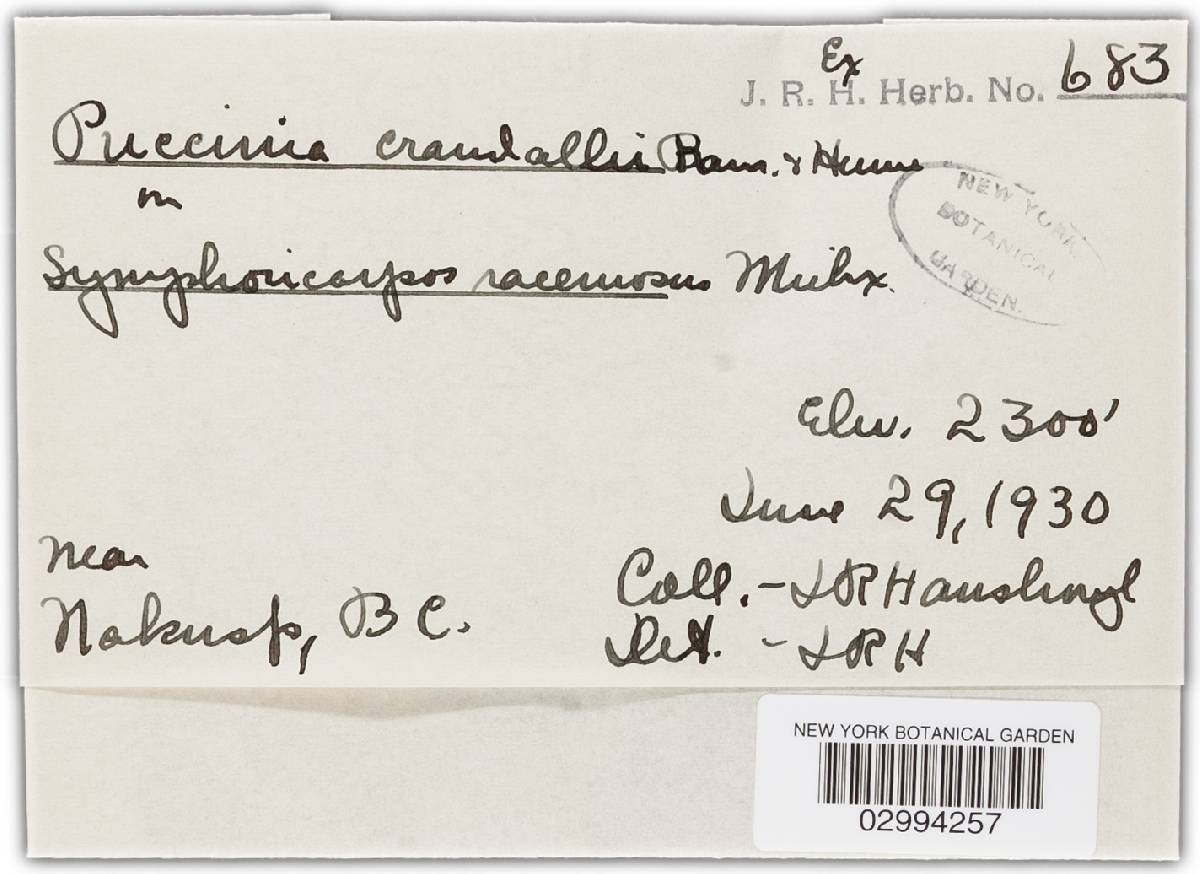 Ex
J. R. H. Herb. No. 683
Puccinia crandallii Pam. & Hume
on
Symphoricarpos racemosus Michx.
NEW YORK
BOTANICAL
GARDEN.
Elev. 2300'
June 29, 1930
near
Nakusp, B C.
Coll. - JRHansbrough
Det. - JRH
NEW YORK BOTANICAL GARDEN
02994257